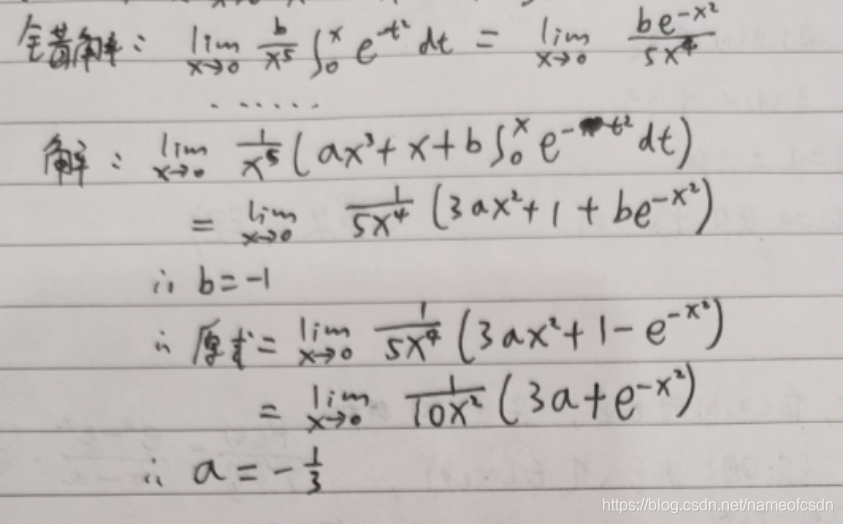 错误解: lim x→0 b/x⁵ ∫₀ˣ e^(-t²) dt = lim x→0 be^(-x²)/5x⁴
......
解: lim x→0 1/x⁵ (ax³+x+b∫₀ˣ e^(-t²) dt)
= lim x→0 1/5x⁴ (3ax²+1+be^(-x²))
∴ b=-1
∴ 原式= lim x→0 1/5x⁴ (3ax²+1-e^(-x²))
= lim x→0 1/10x² (3a+e^(-x²))
∴ a=-1/3
https://blog.csdn.net/nameofcsdn